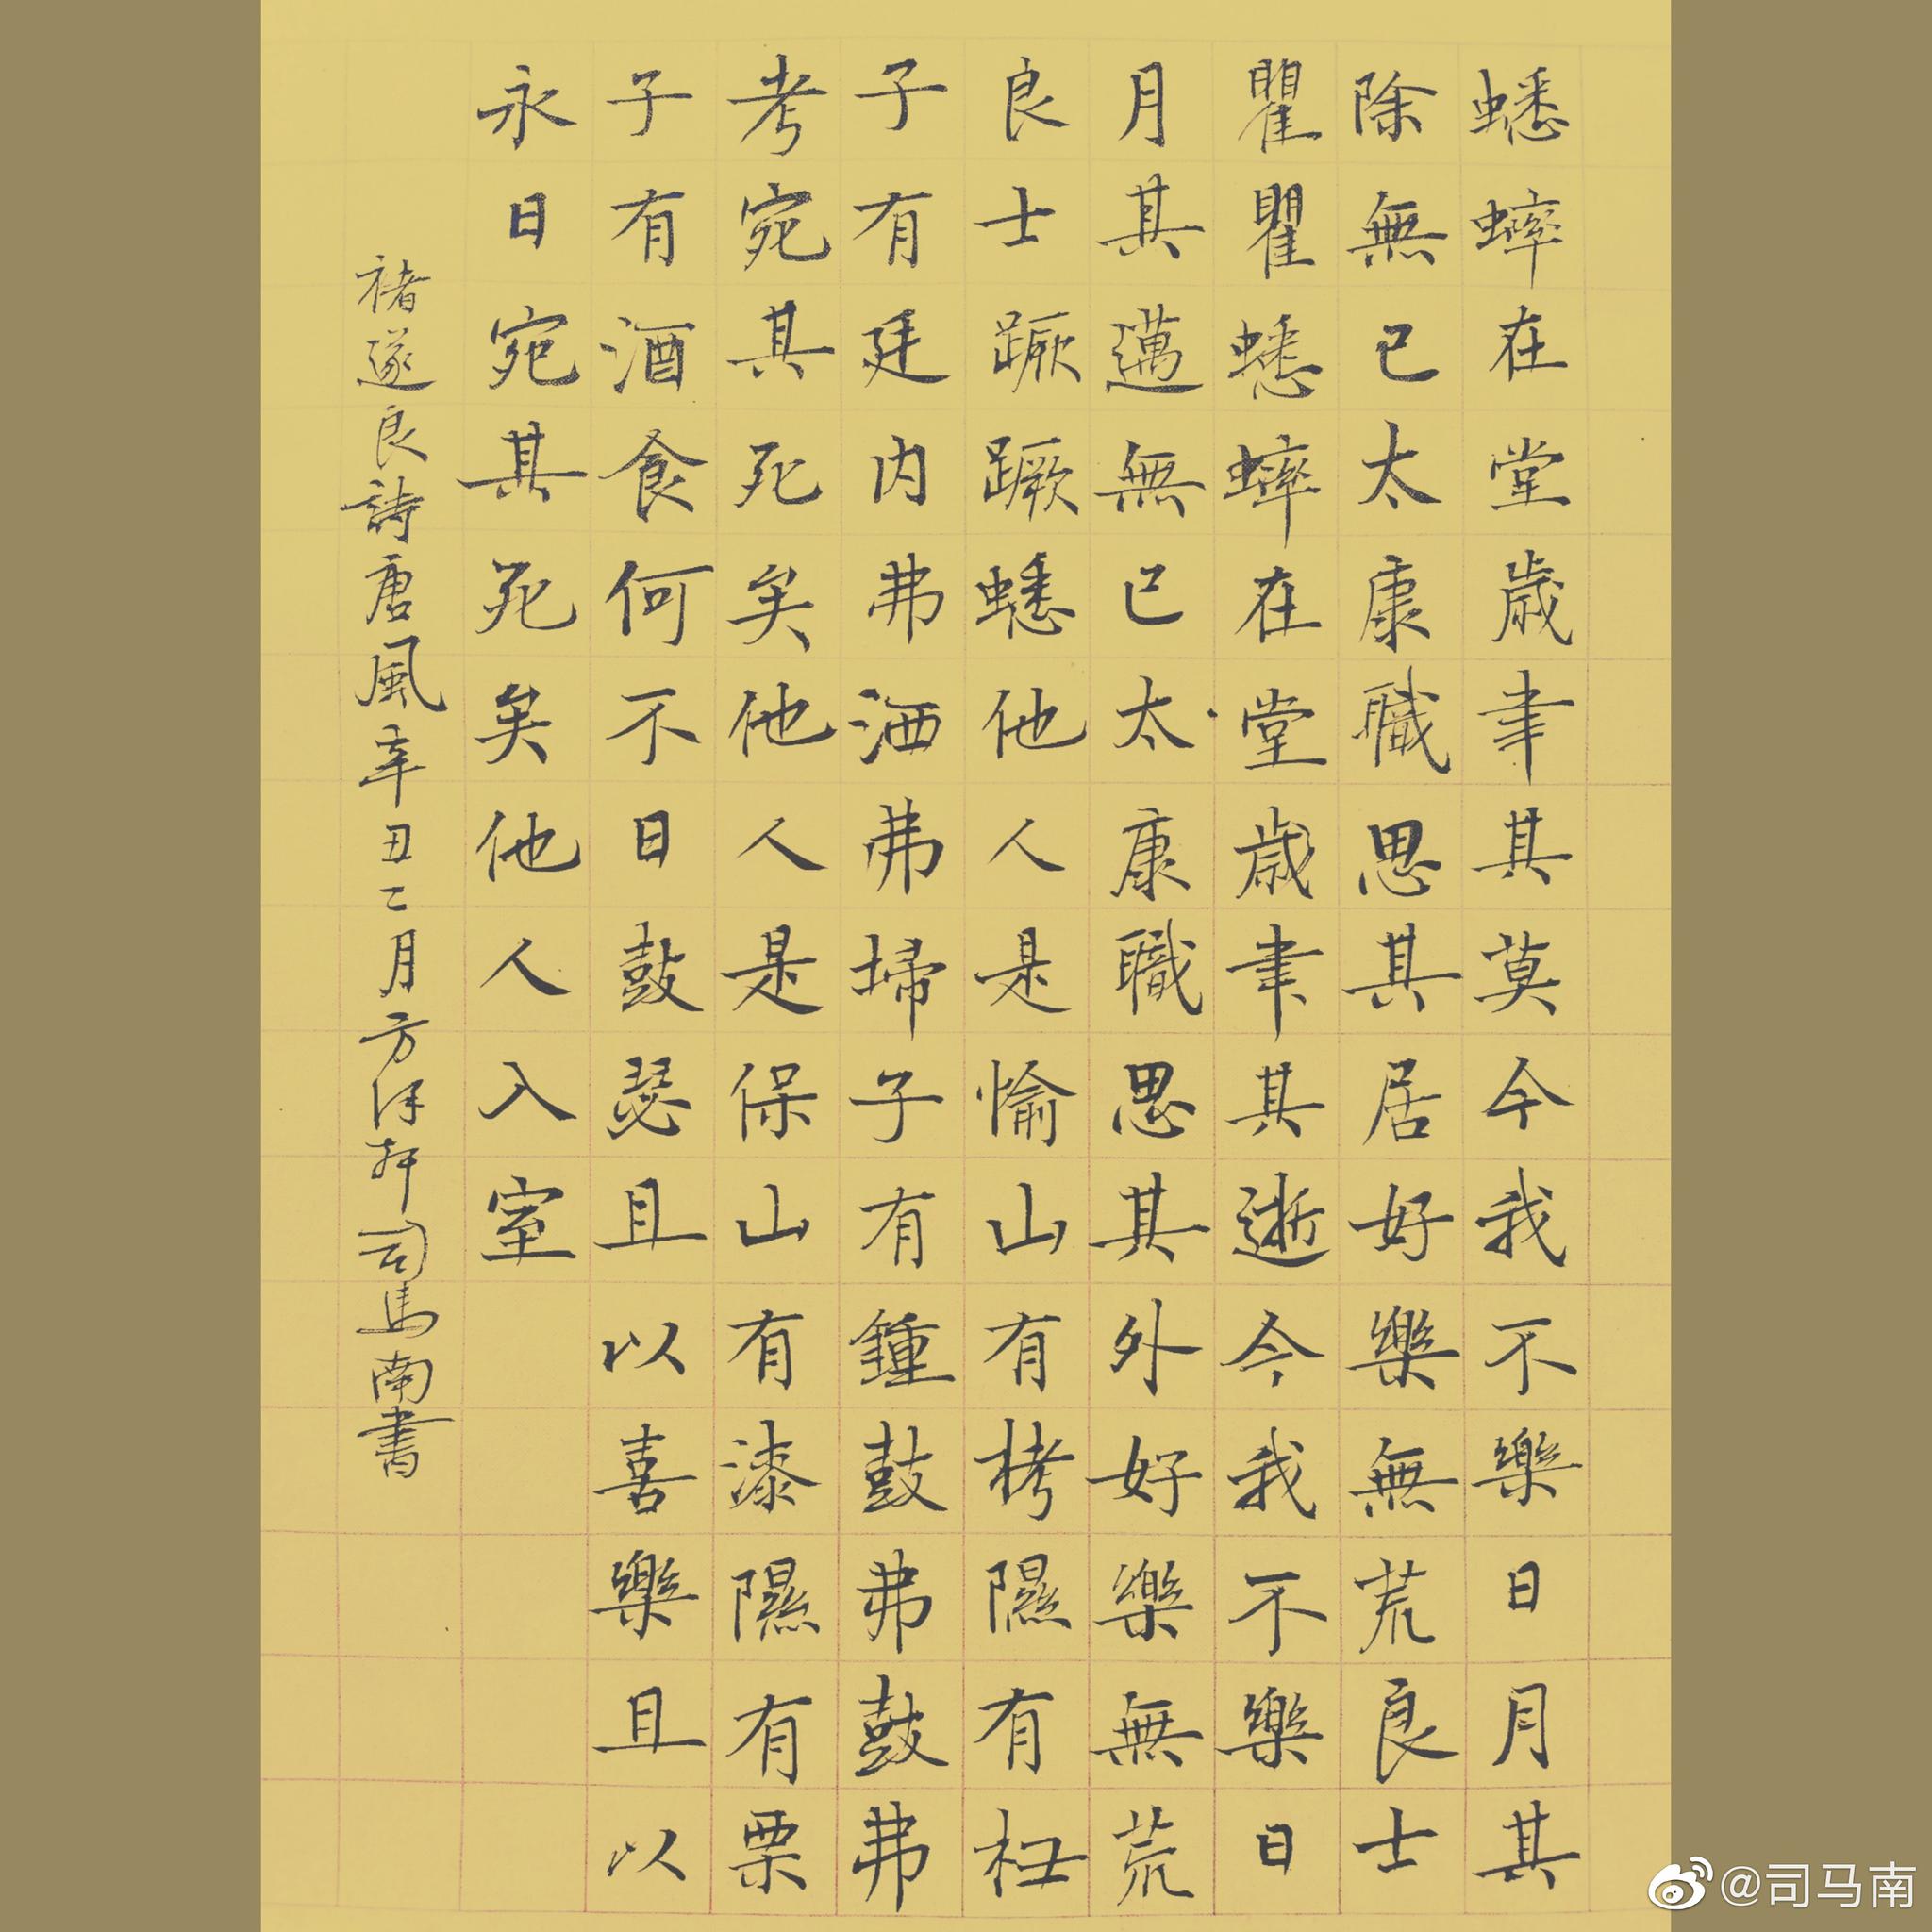 蟋蟀在堂歲聿其莫今我不樂日月其
除無已太康職思其居好樂無荒良士
瞿瞿蟋蟀在堂歲聿其逝今我不樂日
月其邁無已太康職思其外好樂無荒
良士蹶蹶蟋他人是愉山有栲隰有杻
子有廷内弗洒弗埽子有鍾鼓弗鼓弗
考宛其死矣他人是保山有漆隰有栗
子有酒食何不日鼓瑟且以喜樂且以
永日宛其死矣他人入室
褚遂良詩唐風辛丑二月方司馬南書
@司马南